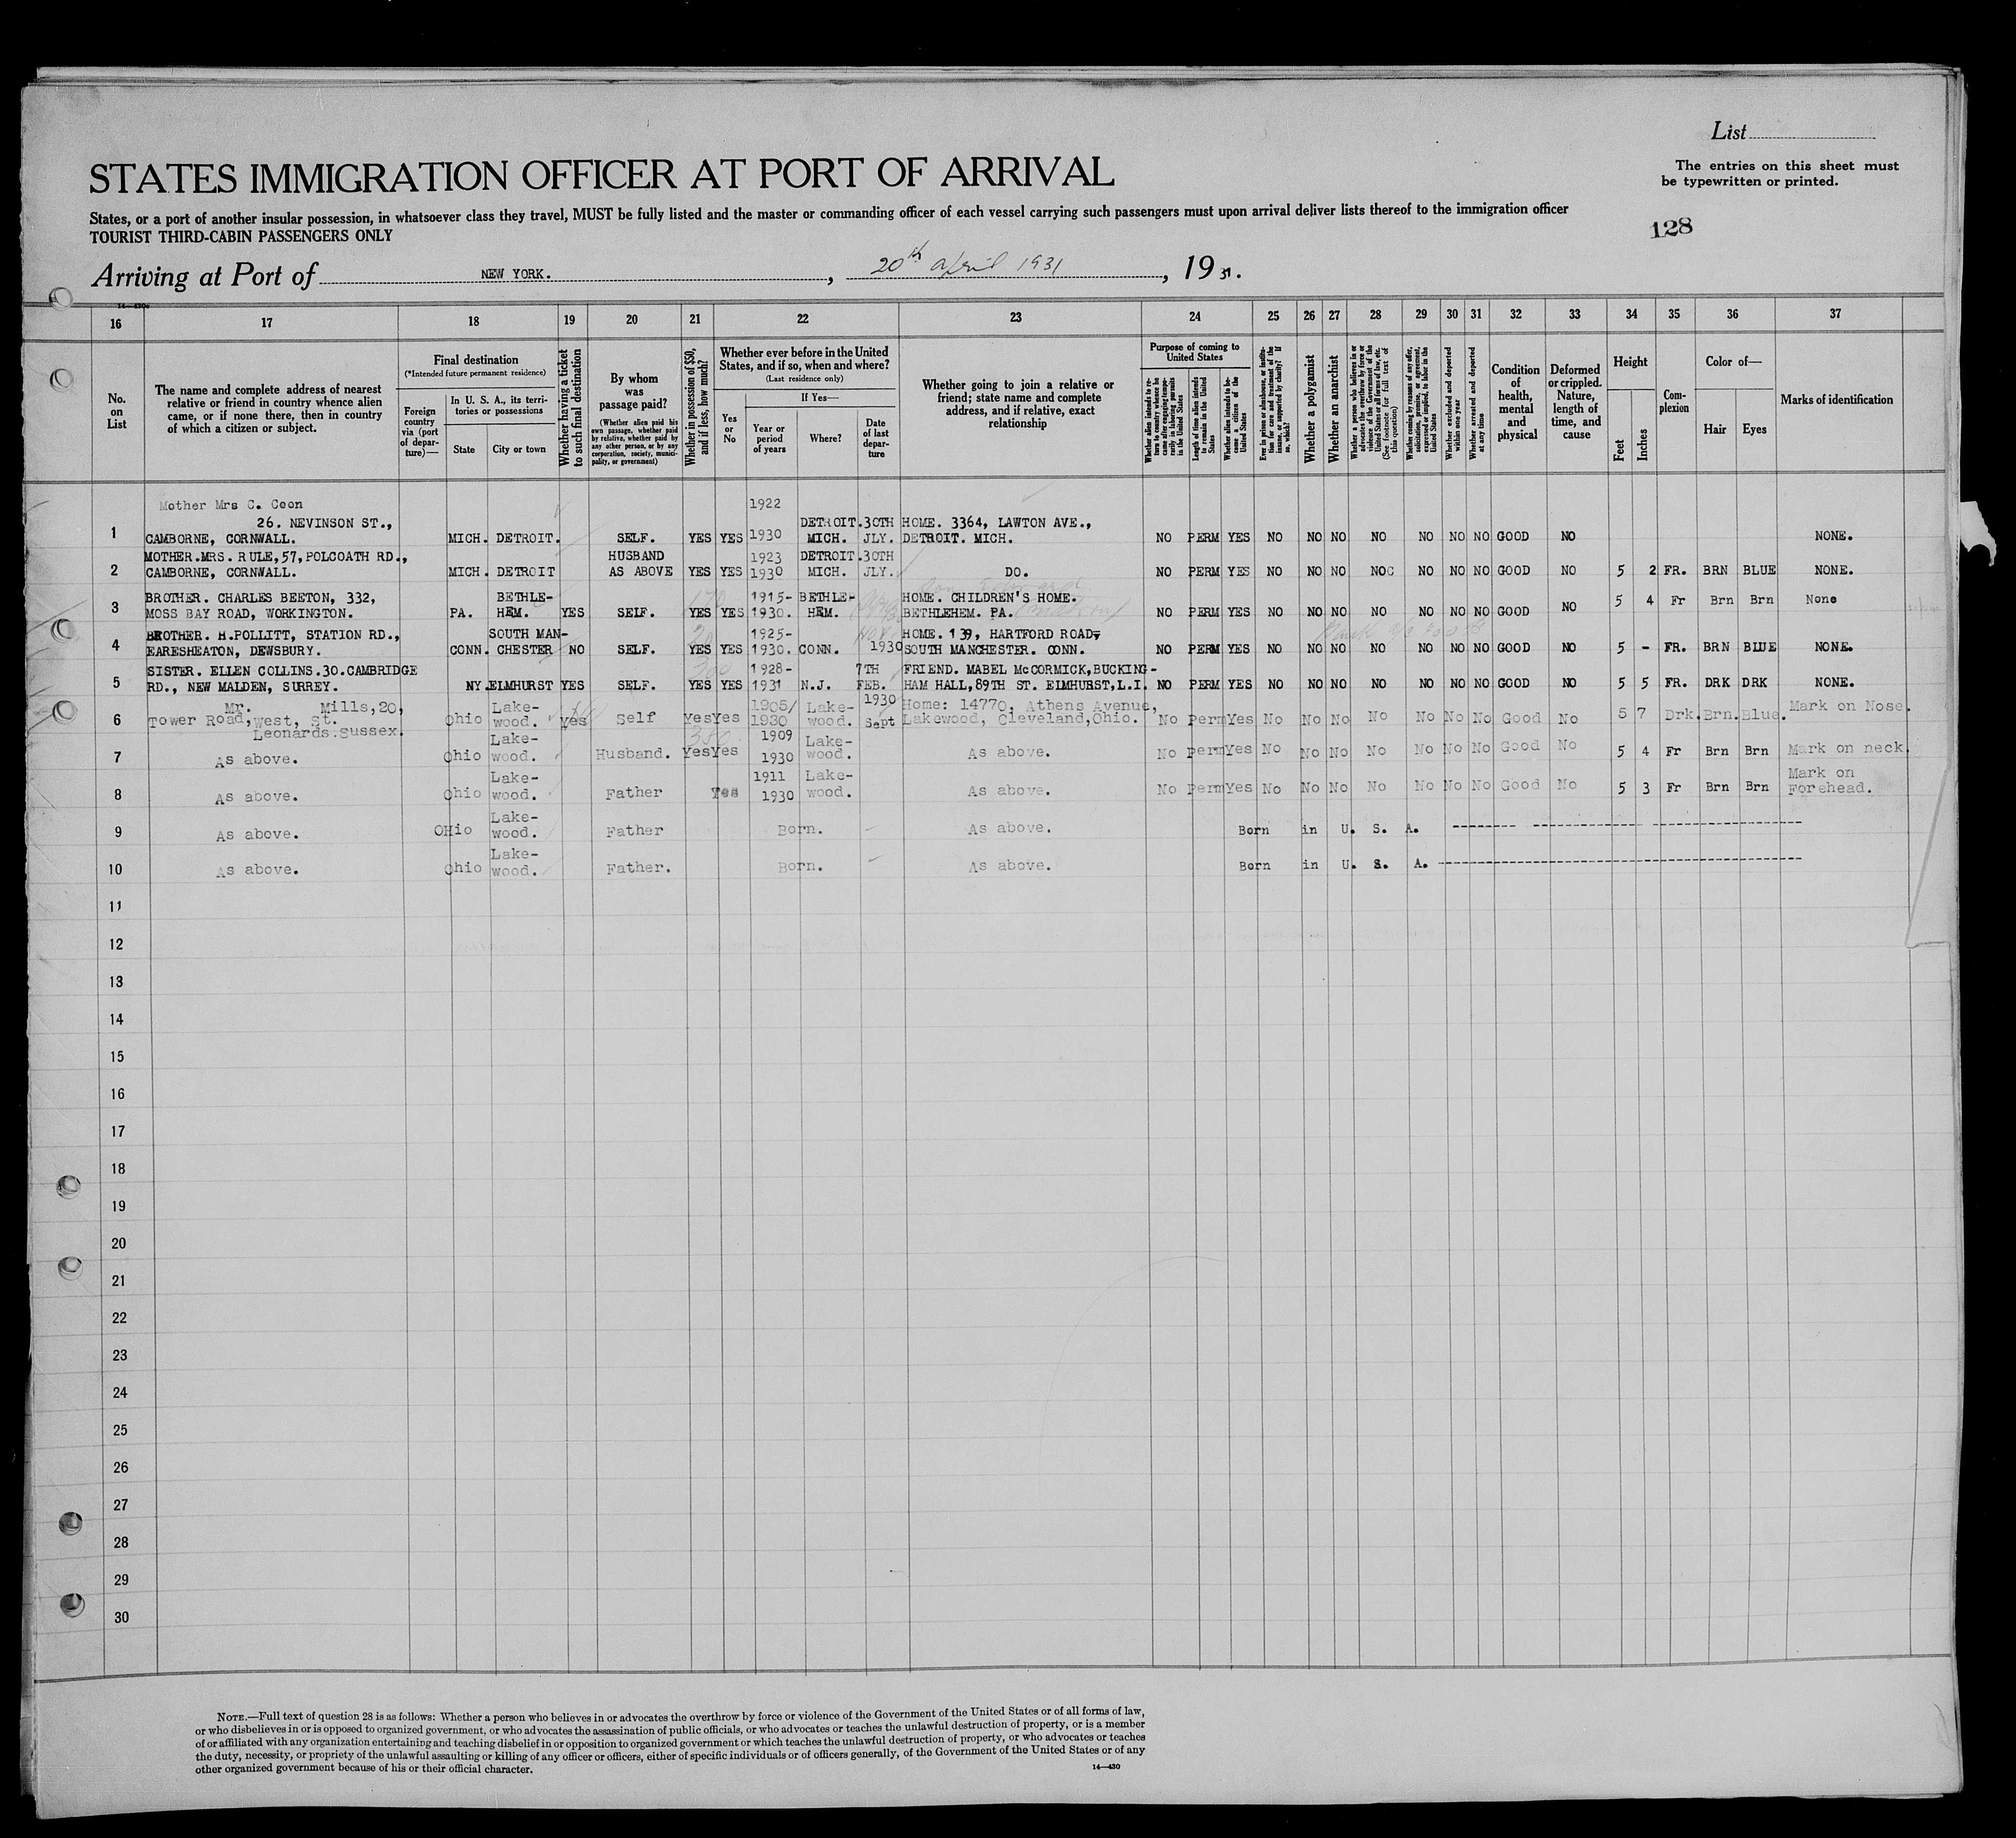 List
STATES IMMIGRATION OFFICER AT PORT OF ARRIVAL
The entries on this sheet must
be typewritten or printed.
States, or a port of another insular possession, in whatsoever class they travel, MUST be fully listed and the master or commanding officer of each vessel carrying such passengers must upon arrival deliver lists thereof to the immigration officer
TOURIST THIRD-CABIN PASSENGERS ONLY
128
Arriving at Port of NEW YORK. , 20th April 1931 , 1931.
14—430
16 17 18 19 20 21 22 23 24 25 26 27 28 29 30 31 32 33 34 35 36 37
No. on List
The name and complete address of nearest relative or friend in country whence alien came, or if none there, then in country of which a citizen or subject.
Final destination
(*Intended future permanent residence)
Foreign country via (port of departure)—
In U. S. A., its territories or possessions
State
City or town
Whether having a ticket to such final destination
By whom was passage paid?
(Whether alien paid his own passage, whether paid by relative, whether paid by any other person, or by any corporation, society, municipality, or government)
Whether in possession of $50, and if less, how much?
Whether ever before in the United States, and if so, when and where?
(Last residence only)
Yes or No
If Yes—
Year or period of years
Where?
Date of last departure
Whether going to join a relative or friend; state name and complete address, and if relative, exact relationship
Purpose of coming to United States
Whether alien intends to return to country whence he came after engaging temporarily in laboring pursuits in the United States
Length of time alien intends to remain in the United States
Whether alien intends to become a citizen of the United States
Ever in prison or almshouse, or institution for care and treatment of the insane, or supported by charity? If so, which?
Whether a polygamist
Whether an anarchist
Whether a person who believes in or advocates the overthrow by force or violence of the Government of the United States or all forms of law, etc. (See footnote for full text of this question)
Whether coming by reason of any offer, solicitation, promise, or agreement, expressed or implied, to labor in the United States
Whether excluded and deported within one year
Whether arrested and deported at any time
Condition of health, mental and physical
Deformed or crippled. Nature, length of time, and cause
Height
Feet
Inches
Complexion
Color of—
Hair
Eyes
Marks of identification
Mother Mrs C. Coon 1922
26. NEVINSON ST., DETROIT. 30TH HOME. 3364, LAWTON AVE.,
1 CAMBORNE, CORNWALL. MICH. DETROIT. SELF. YES YES 1930 MICH. JLY. DETROIT. MICH. NO PERM YES NO NO NO NO NO NO NO GOOD NO NONE.
MOTHER.MRS. RULE,57,POLCOATH RD., HUSBAND 1923 DETROIT. 30TH
2 CAMBORNE, CORNWALL. MICH. DETROIT AS ABOVE YES YES 1930 MICH. JLY. DO. NO PERM YES NO NO NO NO NO NO NO GOOD NO 5 2 FR. BRN BLUE NONE.
BROTHER. CHARLES BEETON, 332, BETHLE- 1915- BETHLE- HOME. CHILDREN'S HOME.
3 MOSS BAY ROAD, WORKINGTON. PA. HEM. YES SELF. YES YES 1930. HEM. BETHLEHEM. PA. NO PERM YES NO NO NO NO NO NO NO GOOD NO 5 4 Fr Brn Brn None
BROTHER. H.POLLITT, STATION RD., SOUTH MAN- 1925- Nov HOME. 139, HARTFORD ROAD,
4 EARESHEATON, DEWSBURY. CONN. CHESTER NO SELF. YES YES 1930. CONN. 1930 SOUTH MANCHESTER. CONN. NO PERM YES NO NO NO NO NO NO NO GOOD NO 5 - FR. BRN BLUE NONE.
SISTER. ELLEN COLLINS.30.CAMBRIDGE 1928- 7TH FRIEND. MABEL McCORMICK,BUCKING-
5 RD., NEW MALDEN, SURREY. NY. ELMHURST YES SELF. YES YES 1931 N.J. FEB. HAM HALL,89TH ST. ELMHURST,L.I. NO PERM YES NO NO NO NO NO NO NO GOOD NO 5 5 FR. DRK DRK NONE.
Mr. Mills,20, Lake- 1905/ Lake- 1930 Home: 14770, Athens Avenue,
6 Tower Road,West, St. Ohio wood. Yes Self Yes Yes 1930 wood. Sept Lakewood, Cleveland,Ohio. No Perm Yes No No No No No No No Good No 5 7 Drk. Brn. Blue. Mark on Nose.
Leonards.Sussex. Lake- 350 1909 Lake-
7 As above. Ohio wood. Husband. Yes Yes 1930 wood. As above. No Perm Yes No No No No No No No Good No 5 4 Fr Brn Brn Mark on neck.
Lake- 1911 Lake- Mark on
8 As above. Ohio wood. Father Yes 1930 wood. As above. No Perm Yes No No No No No No No Good No 5 3 Fr Brn Brn Forehead.
Lake-
9 As above. OHio wood. Father Born. As above. Born in U. S. A.
Lake-
10 As above. Ohio wood. Father. Born. As above. Born in U. S. A.
11
12
13
14
15
16
17
18
19
20
21
22
23
24
25
26
27
28
29
30
NOTE.—Full text of question 28 is as follows: Whether a person who believes in or advocates the overthrow by force or violence of the Government of the United States or of all forms of law,
or who disbelieves in or is opposed to organized government, or who advocates the assassination of public officials, or who advocates or teaches the unlawful destruction of property, or is a member
of or affiliated with any organization entertaining and teaching disbelief in or opposition to organized government or which teaches the unlawful destruction of property, or who advocates or teaches
the duty, necessity, or propriety of the unlawful assaulting or killing of any officer or officers, either of specific individuals or of officers generally, of the Government of the United States or of any
other organized government because of his or their official character.
14—430